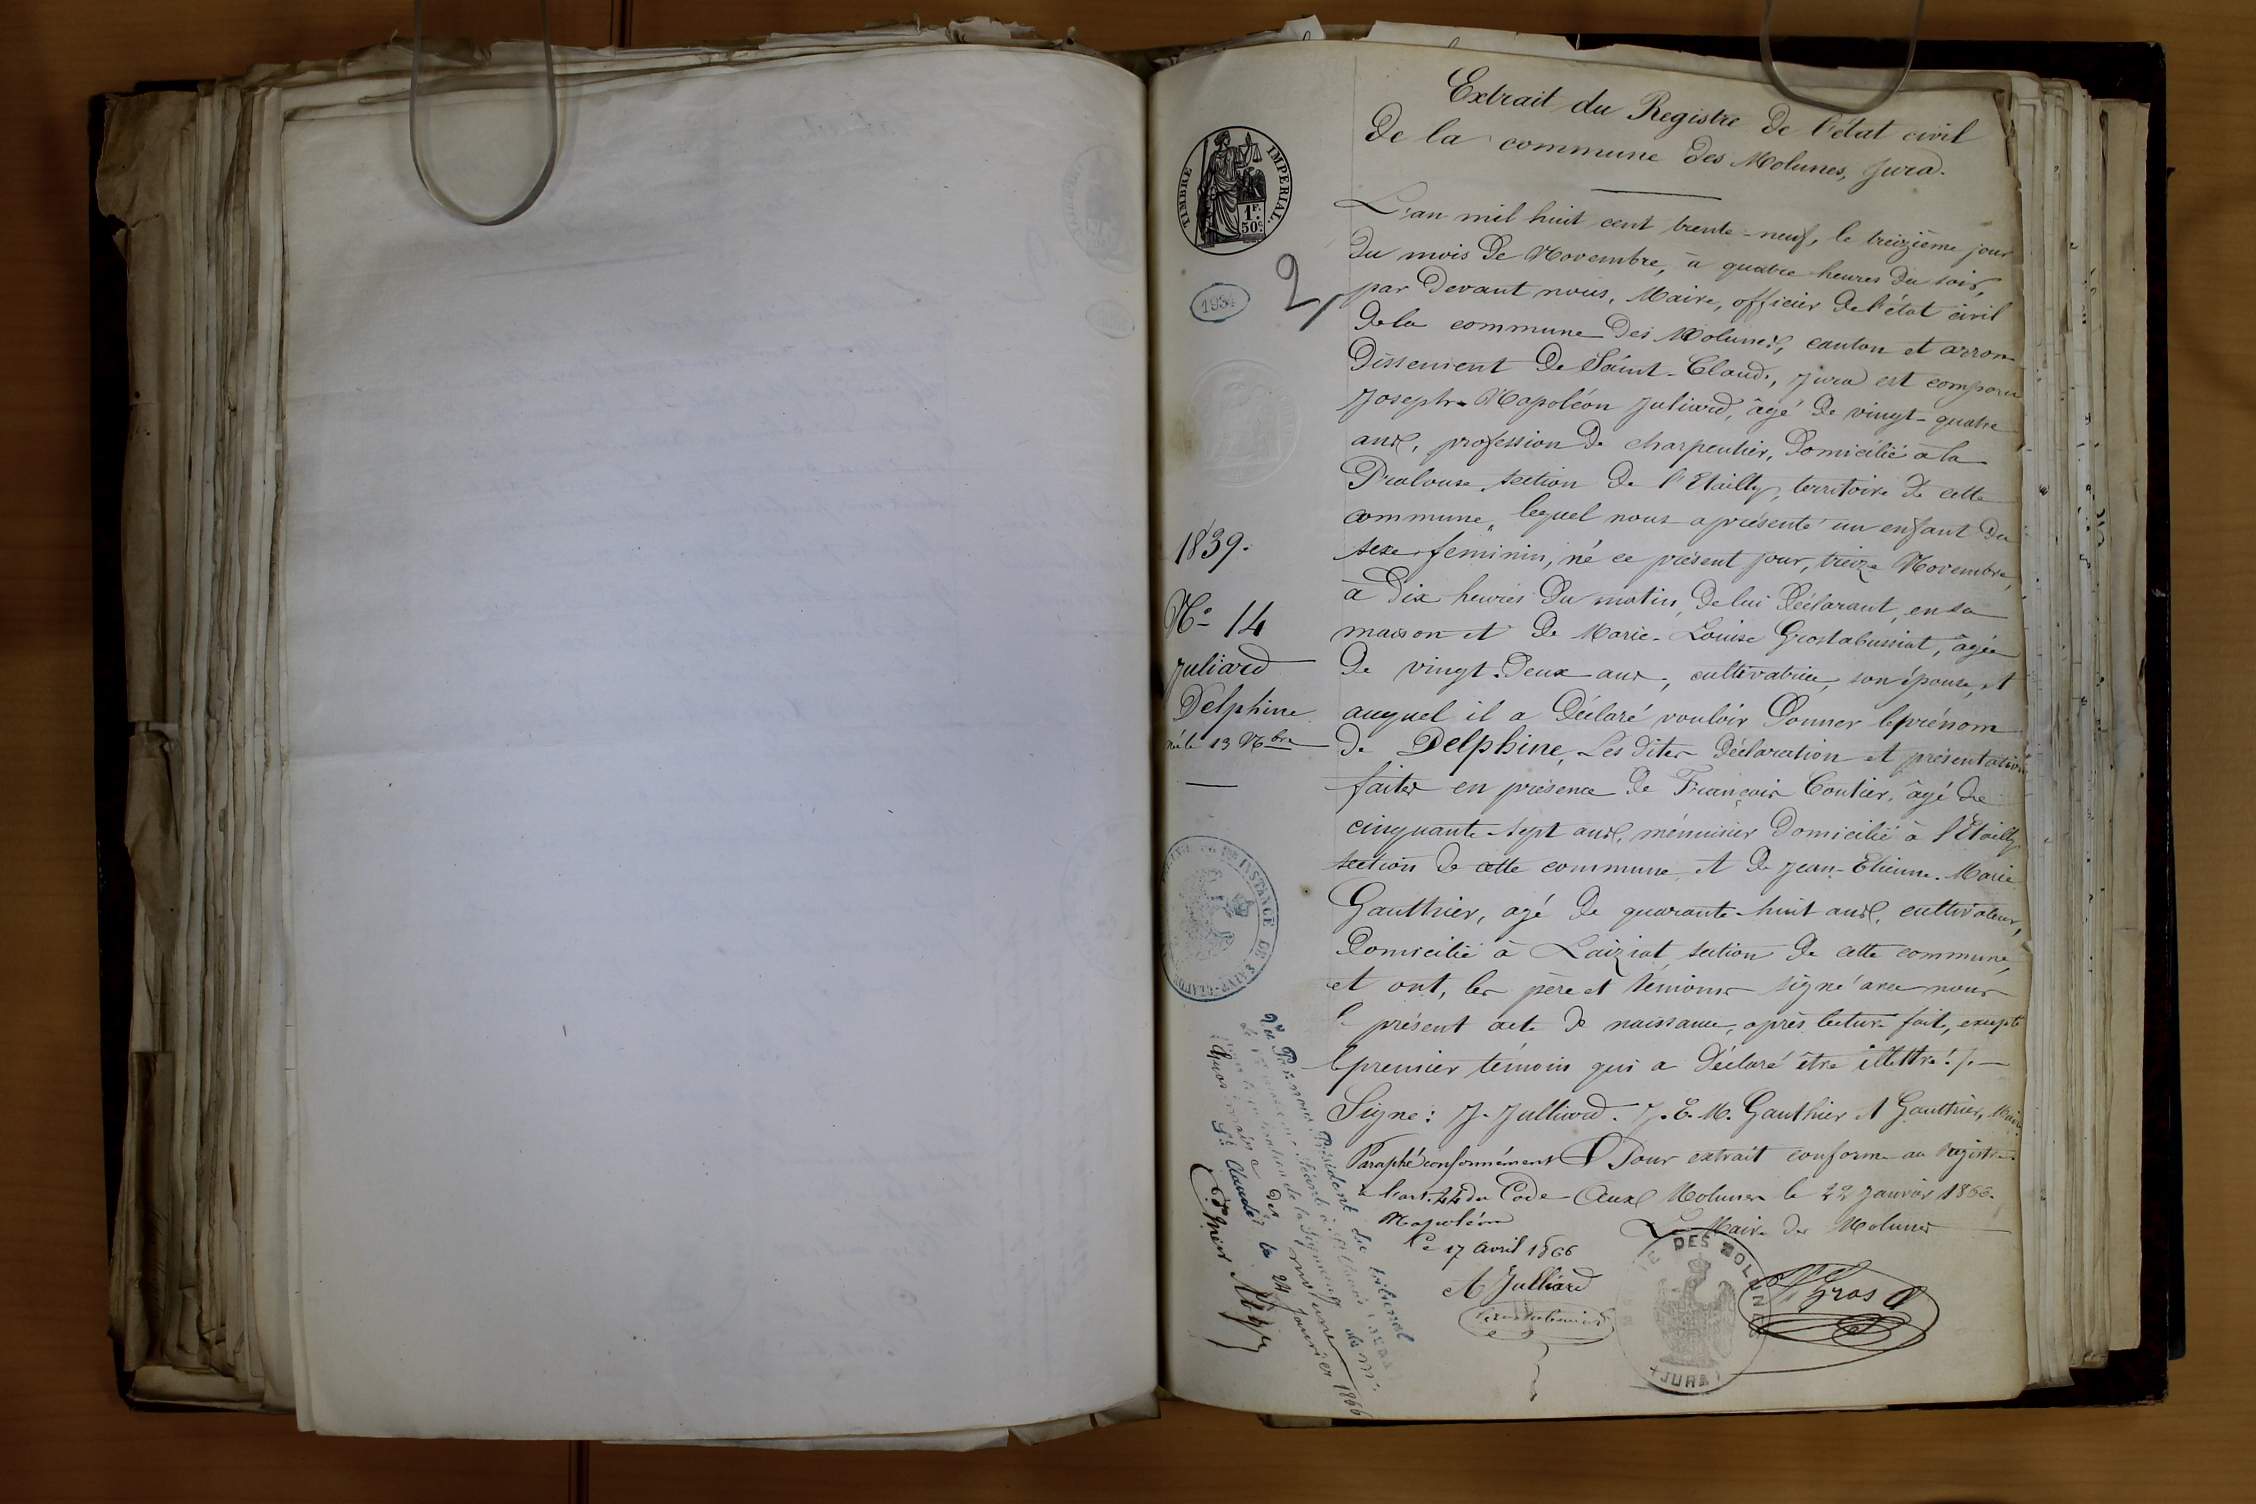 Extrait du Registre de l'état civil
de la commune des Molunes, Jura.
TIMBRE IMPERIAL.
1F. 50c.
1934
2,
L'an mil huit cent trente-neuf, le treizième jour
du mois de Novembre, à quatre heures du soir,
par devant nous, Maire, officier de l'état civil
de la commune des Molunes, canton et arron-
dissement de Saint-Claude, Jura est comparu
Joseph-Napoléon Juliard, âgé de vingt-quatre
ans, profession de charpentier, domicilié à la
section de l'Etailly, territoire de cette
commune, lequel nous a présenté un enfant du
sexe féminin, né ce présent jour, treize Novembre,
à dix heures du matin, de lui déclarant, en sa
maison et de Marie-Louise Grostabussiat, âgée
de vingt-deux ans, cultivatrice, son épouse, et
auquel il a déclaré vouloir donner le prénom
de Delphine, Les dites déclaration et présentation
faites en présence de François Coutier, âgé de
cinquante-sept ans, ménuisier domicilié à l'Etailly
section de cette commune et de Jean-Etienne-Marie
Gauthier, agé de quarante-huit ans, cultivateur,
domicilié à Laiziat, section de cette commune,
et ont, les père et témoins signé avec nous
le présent acte de naissance, après lecture faite, excepté
le premier témoin qui a déclaré être illettré ./.
Signé: J. Julliard. J. E. M. Gauthier et Gauthier, Maire.
Pour extrait conforme au registre
Aux Molunes le 22 Janvier 1866.
Le Maire des Molunes
Gros
MAIRIE DES MOLUNES (JURA)
Paraphé conformément
à l'art. 44 du Code
Napoléon
Le 17 avril 1866
A Julliard
Grostabussiat
1839.
No 14
Juliard
Delphine
née le 13 Nbre
INSTANCE DE SAINT-CLAUDE
Vu Par nous, Président du tribunal
de la Signature
St Claude, le 24 Janvier 1866